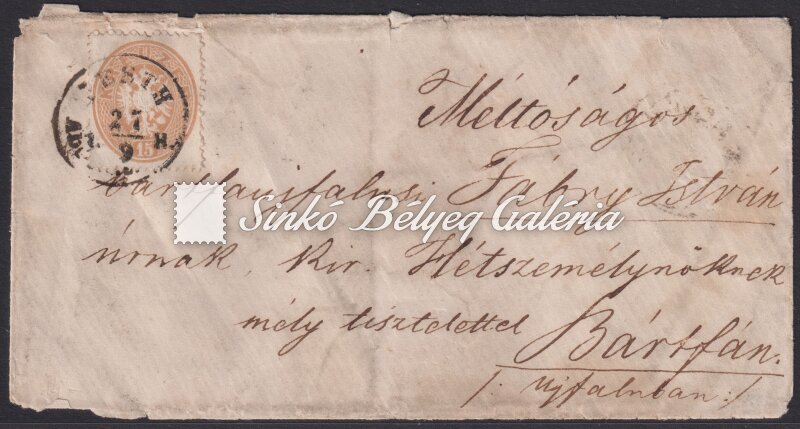 PESTH
27
9
15
Méltóságos
bártfaujfalusi Fábry István
Sinkó Bélyeg Galéria
úrnak, Kir. Hétszemélynöknek
mély tisztelettel
Bártfán.
/: Ujfaluban :/